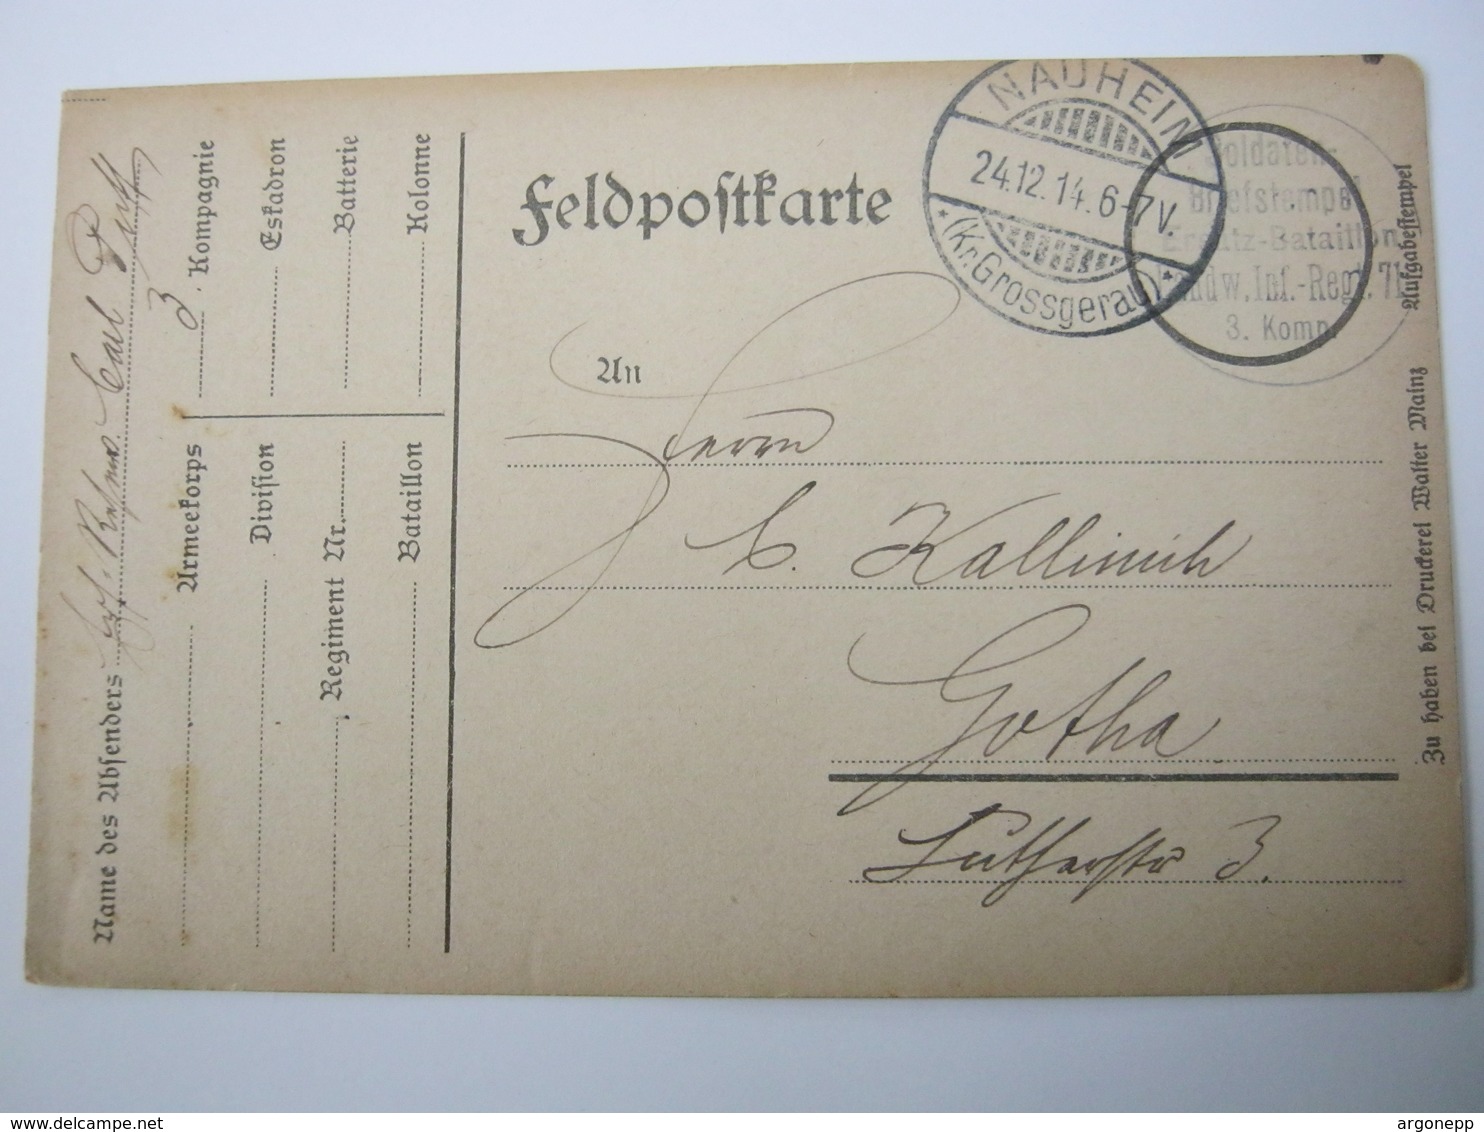 Feldpostkarte
NAUHEIM
24.12.14. 6-7V.
*(Kr. Grossgerau)*
Soldaten-
Briefstempel
Ersatz-Bataillon
Landw. Inf.-Regt. 71
3. Komp.
Aufgabestempel
An
Herrn
C.
Gotha
Lutherstr 3.
Zu haben bei Druckerei Walter Mainz
Name des Absenders Carl
3. Kompagnie
Eskadron
Batterie
Kolonne
Armeekorps
Division
Regiment Nr.
Bataillon
www.delcampe.net
argonepp